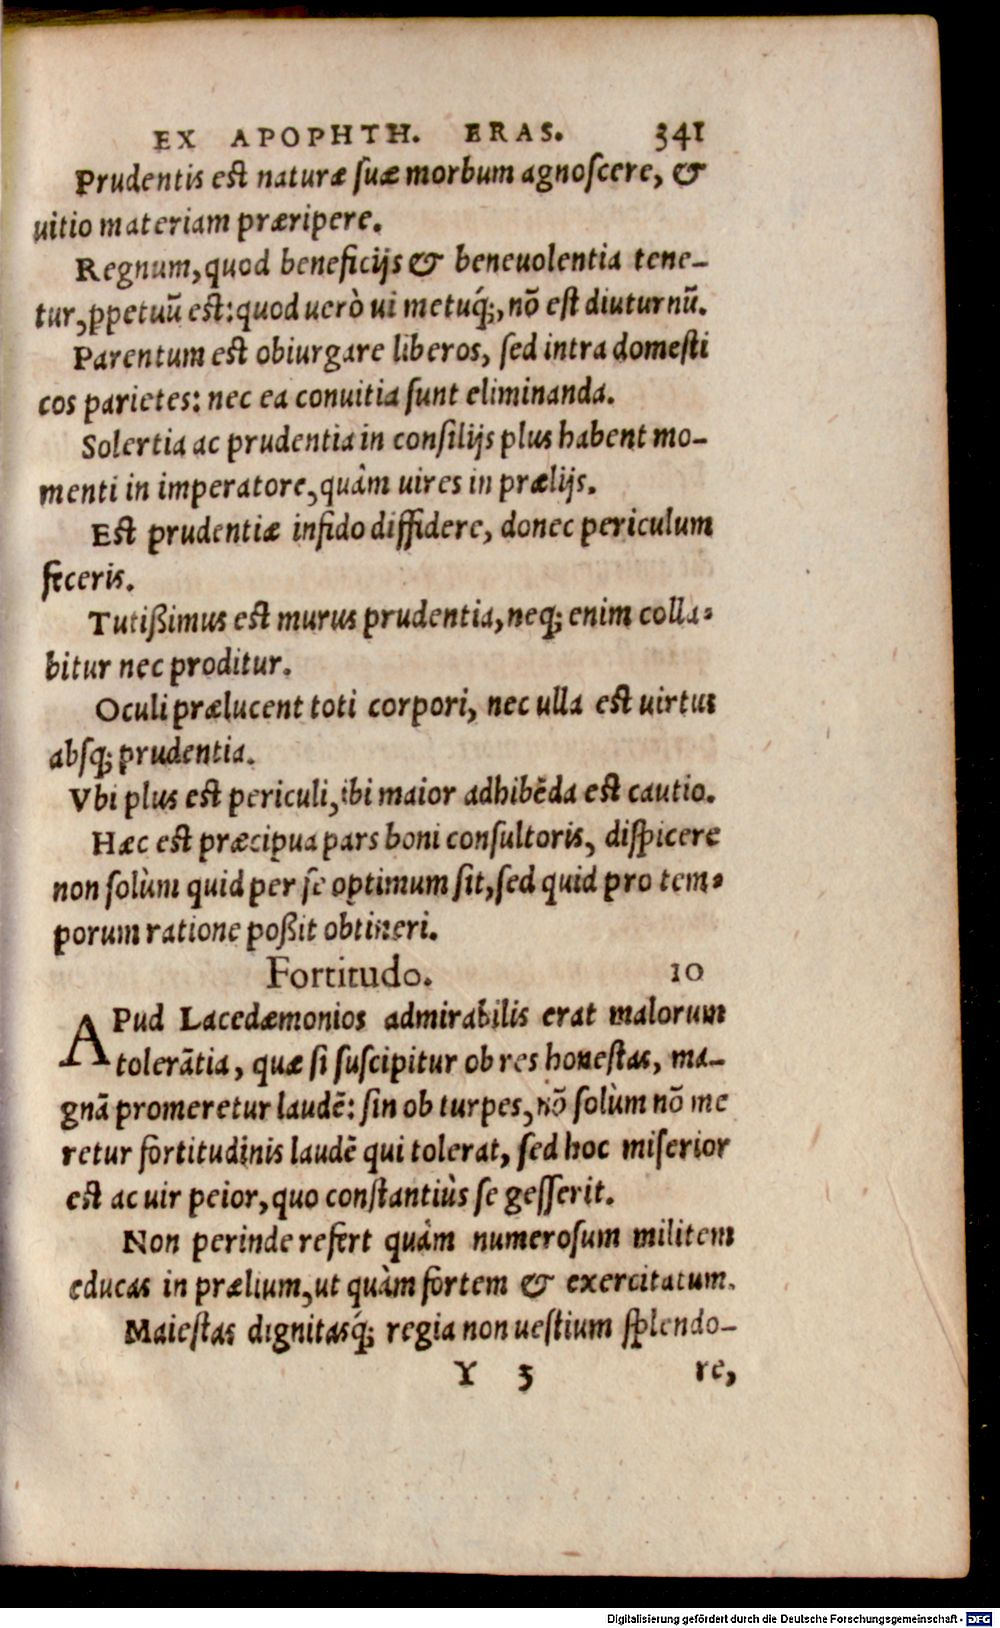 EX APOPHTH. ERAS. 341
Prudentis est naturæ suæ morbum agnoscere, &
uitio materiam præripere.
Regnum, quod beneficijs & beneuolentia tene-
tur, ꝑpetuũ est: quod uerò ui metuq́;, nõ est diuturnũ.
Parentum est obiurgare liberos, sed intra domesti
cos parietes: nec ea conuitia sunt eliminanda.
Solertia ac prudentia in consilijs plus habent mo-
menti in imperatore, quàm uires in prælijs.
Est prudentiæ infido diffidere, donec periculum
feceris.
Tutißimus est murus prudentia, neq; enim colla-
bitur nec proditur.
Oculi prælucent toti corpori, nec ulla est uirtus
absq; prudentia.
Vbi plus est periculi, ibi maior adhibẽda est cautio.
Hæc est præcipua pars boni consultoris, dispicere
non solùm quid per se optimum sit, sed quid pro tem-
porum ratione poßit obtineri.
Fortitudo. 10
APud Lacedæmonios admirabilis erat malorum
tolerãtia, quæ si suscipitur ob res honestas, ma-
gnã promeretur laudẽ: sin ob turpes, nõ solùm nõ me
retur fortitudinis laudẽ qui tolerat, sed hoc miserior
est ac uir peior, quo constantiùs se gesserit.
Non perinde refert quàm numerosum militem
educas in prælium, ut quàm fortem & exercitatum.
Maiestas dignitasq́; regia non uestium splendo-
Y 3 re,
Digitalisierung gefördert durch die Deutsche Forschungsgemeinschaft - DFG